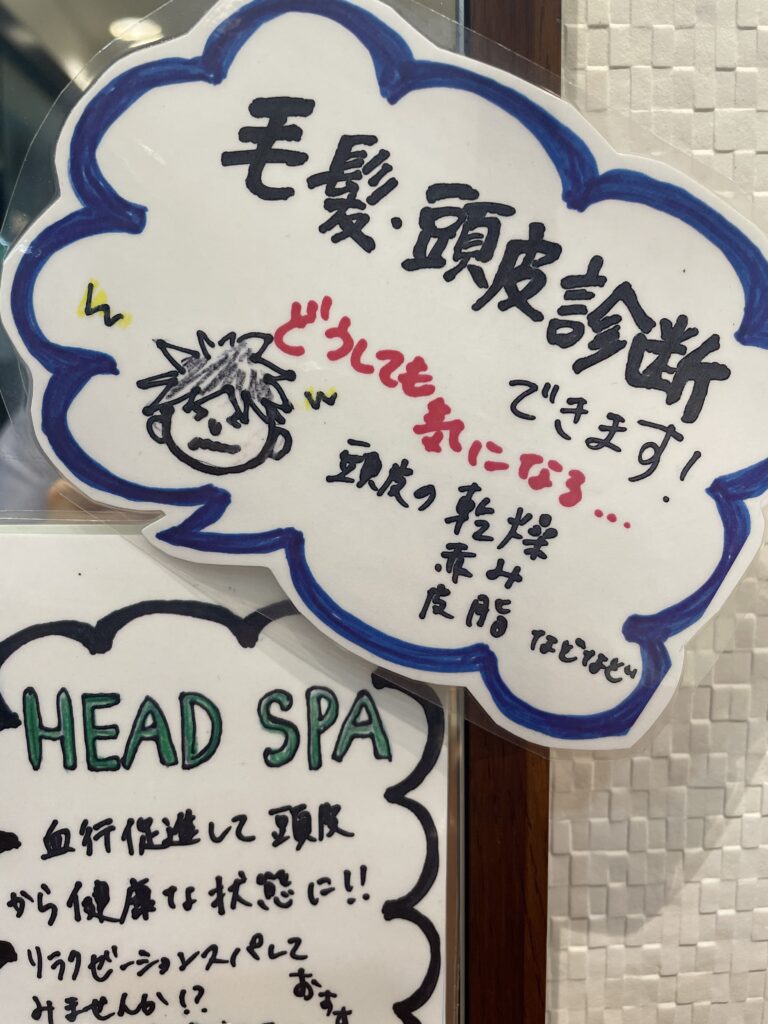 毛髪・頭皮診断
できます!
どうしても
気になる...
頭皮の乾燥
赤み
皮脂 などなど
HEAD SPA
血行促進して頭皮
から健康な状態に!!
リラクゼーションスパして
みませんか!?
おすす